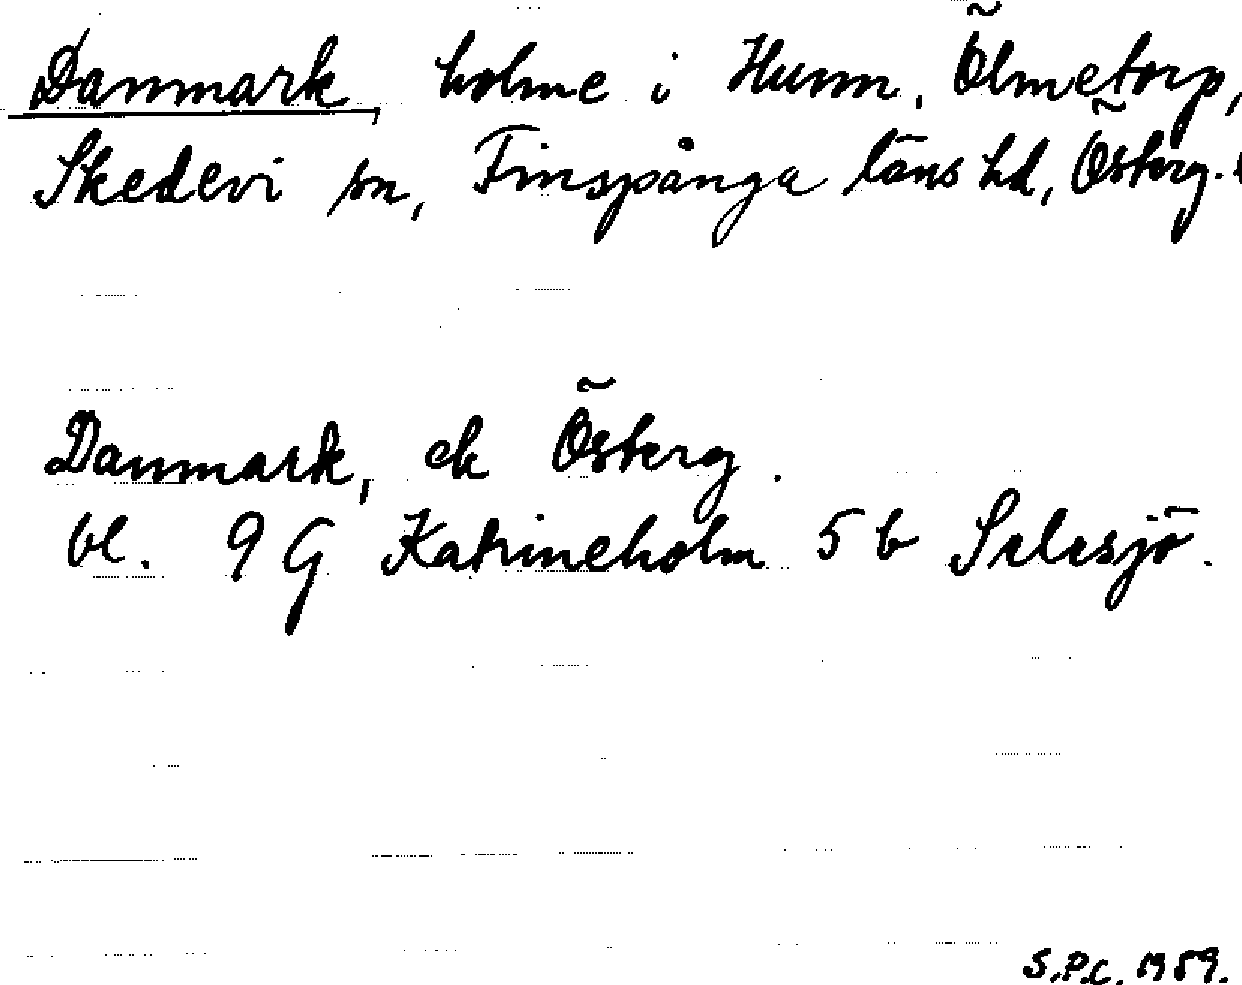 Danmark, holme i Hunn, Ölmetorp,
Skedevi sn, Finspånga läns hd, Östergl.
Danmark, ek Österg.
bl. 9 G Katrineholm 5 b Sälesjö.
S.P.C. 1959.